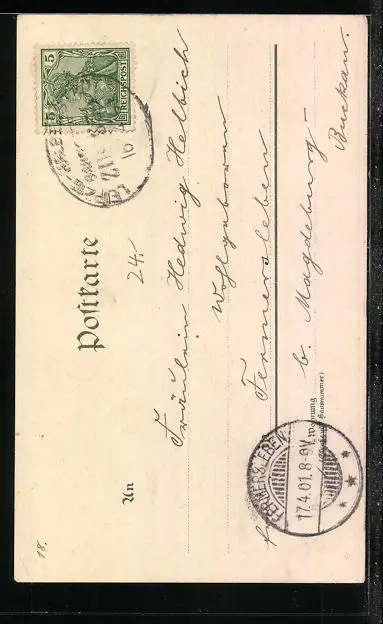 Postkarte
5
5
REICHSPOST
24.-
An
Fräulein Hedwig Helbich
Wohlgeboren
Fermersleben
b. Magdeburg-
Buckau.
Wohnung
(Straße und Hausnummer)
FERMERSLEBEN
17.4.01.8-9V.
18.